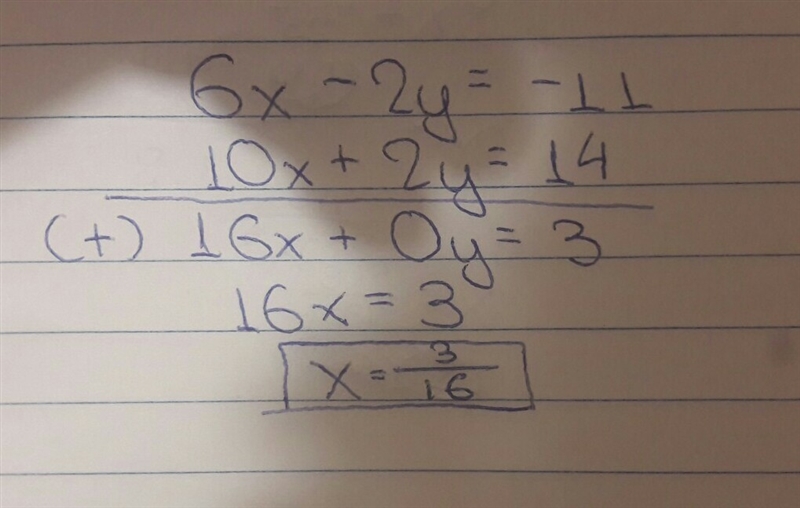 6x - 2y = -11
10x + 2y = 14
(+) 16x + 0y = 3
16x = 3
x = 3/16